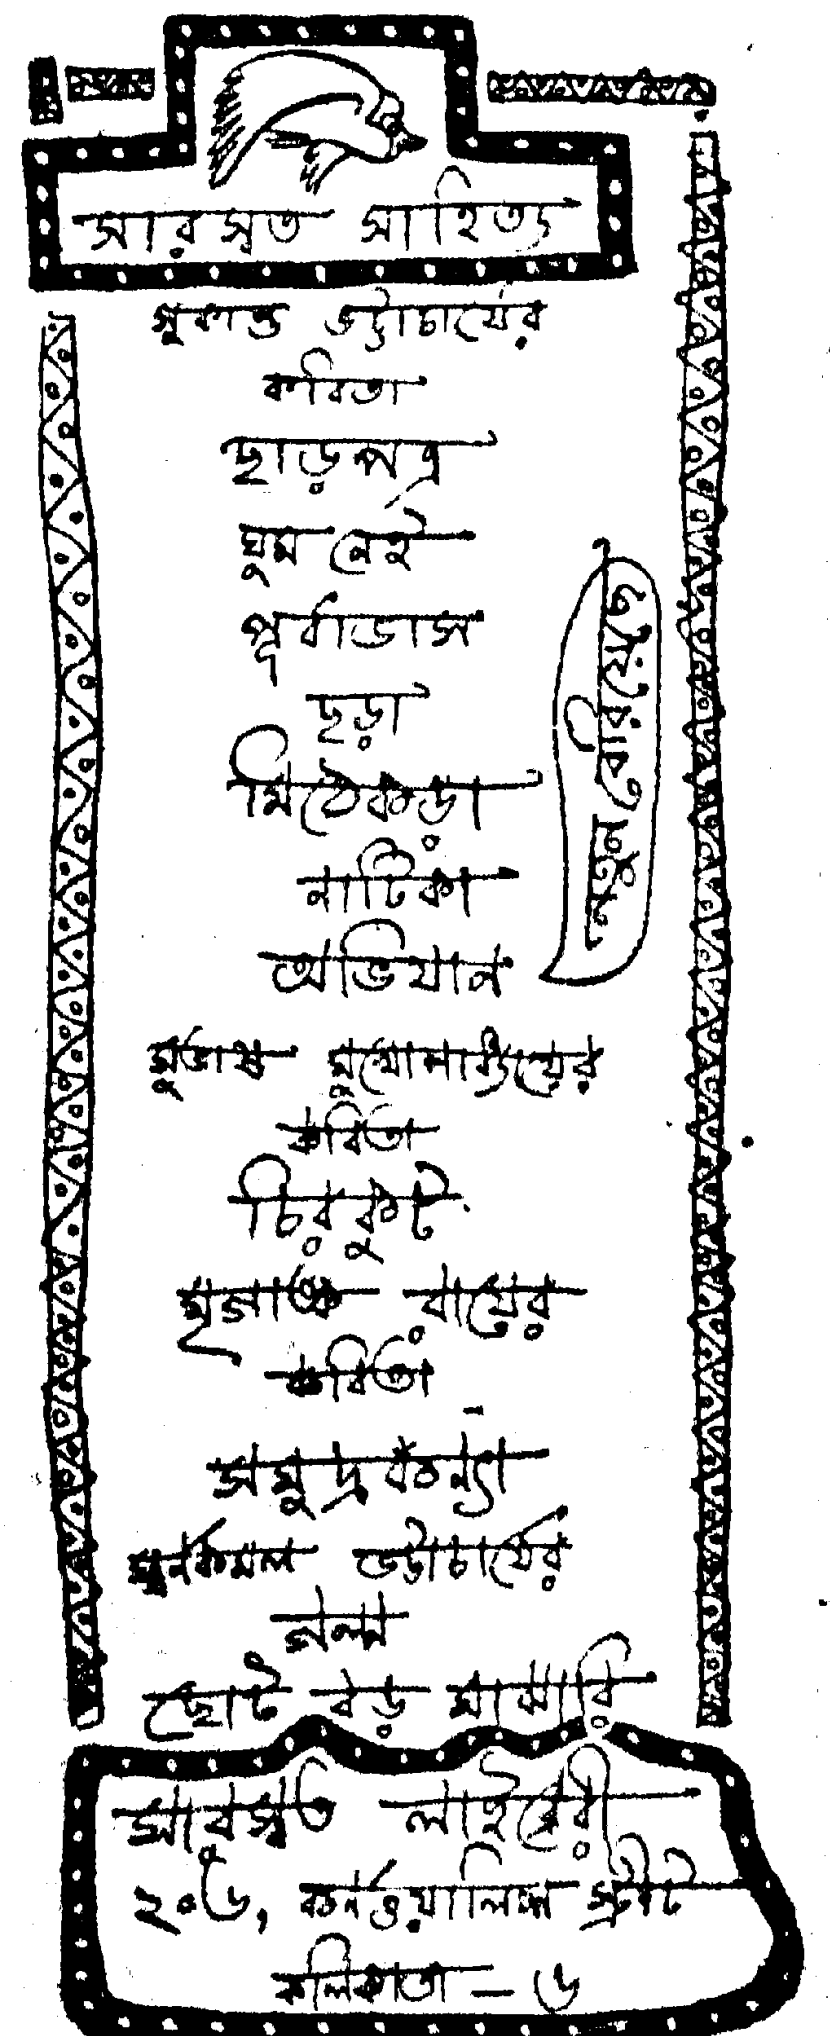 সারস্বত সাহিত্য
সুকান্ত ভট্টাচার্যের
কবিতা
ছাড়পত্র
ঘুম নেই
পূর্বাভাস
ছড়া
মিঠেকড়া
নাটিকা
অভিযান
নতুন বেরিয়েছে
সুভাষ মুখোপাধ্যায়ের
কবিতা
চিরকুট
মৃগাঙ্ক রায়ের
কবিতা
সমুদ্রকন্যা
ভট্টাচার্যের
গল্প
ছোট বড় মাঝারি
সারস্বত লাইব্রেরী
২০৬, কর্নওয়ালিস স্ট্রীট
কলিকাতা – ৬